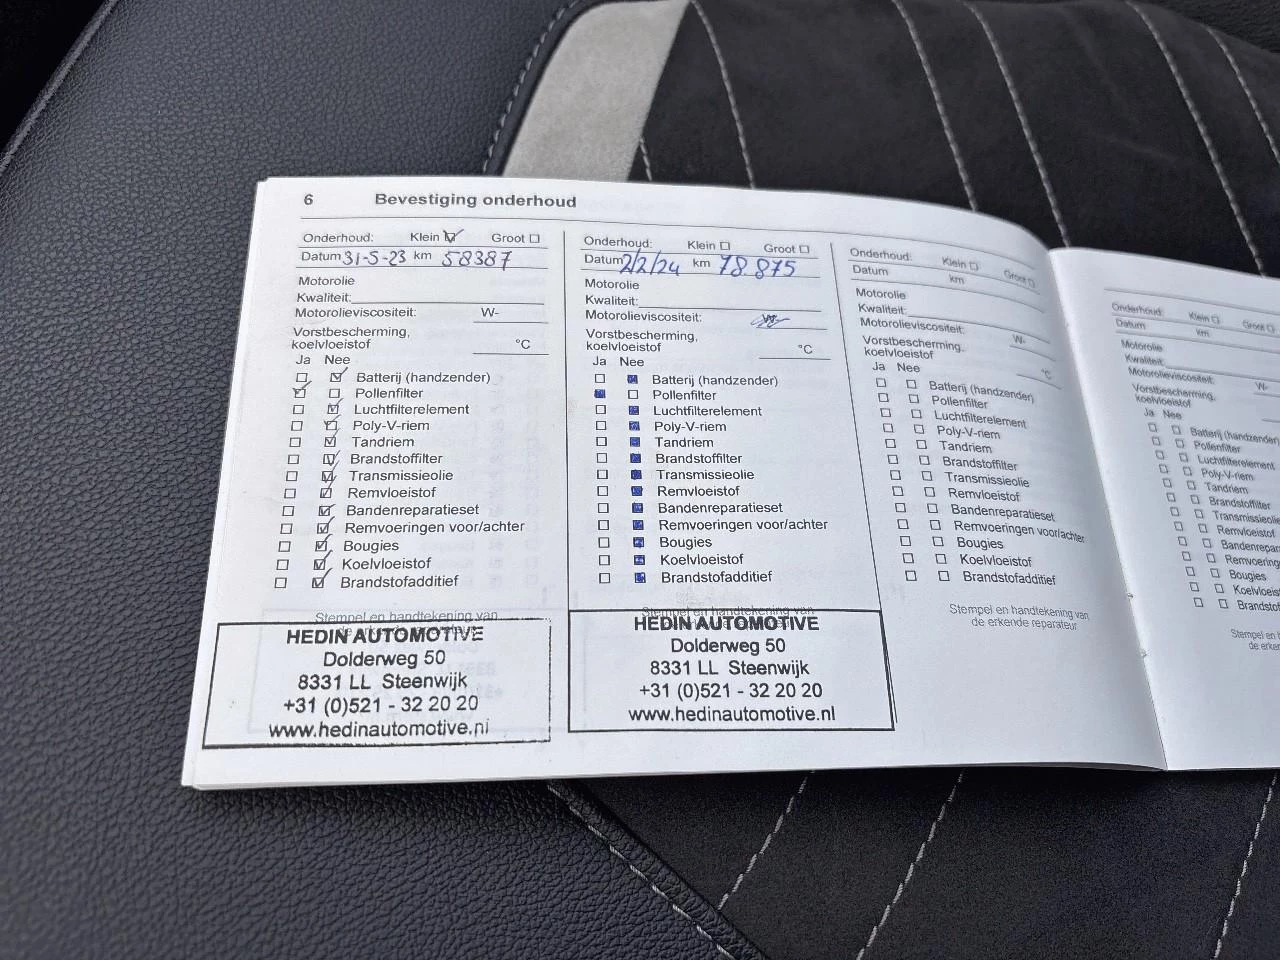 6 Bevestiging onderhoud
Onderhoud: Klein Groot
Datum 31-5-23 km 58387
Motorolie
Kwaliteit:
Motorolieviscositeit: W-
Vorstbescherming,
koelvloeistof °C
Ja Nee
Batterij (handzender)
Pollenfilter
Luchtfilterelement
Poly-V-riem
Tandriem
Brandstoffilter
Transmissieolie
Remvloeistof
Bandenreparatieset
Remvoeringen voor/achter
Bougies
Koelvloeistof
Brandstofadditief
Stempel en handtekening van
HEDIN AUTOMOTIVE
Dolderweg 50
8331 LL Steenwijk
+31 (0)521 - 32 20 20
www.hedinautomotive.nl
Onderhoud: Klein Groot
Datum 2/2/24 km 78.875
Motorolie
Kwaliteit:
Motorolieviscositeit: W-
Vorstbescherming,
koelvloeistof °C
Ja Nee
Batterij (handzender)
Pollenfilter
Luchtfilterelement
Poly-V-riem
Tandriem
Brandstoffilter
Transmissieolie
Remvloeistof
Bandenreparatieset
Remvoeringen voor/achter
Bougies
Koelvloeistof
Brandstofadditief
Stempel en handtekening van
HEDIN AUTOMOTIVE
Dolderweg 50
8331 LL Steenwijk
+31 (0)521 - 32 20 20
www.hedinautomotive.nl
Onderhoud: Klein Groot
Datum km
Motorolie
Kwaliteit:
Motorolieviscositeit: W-
Vorstbescherming,
koelvloeistof °C
Ja Nee
Batterij (handzender)
Pollenfilter
Luchtfilterelement
Poly-V-riem
Tandriem
Brandstoffilter
Transmissieolie
Remvloeistof
Bandenreparatieset
Remvoeringen voor/achter
Bougies
Koelvloeistof
Brandstofadditief
Stempel en handtekening van
de erkende reparateur
Onderhoud: Klein Groot
Datum km
Motorolie
Kwaliteit:
Motorolieviscositeit: W-
Vorstbescherming,
koelvloeistof
Ja Nee
Batterij (handzender)
Pollenfilter
Luchtfilterelement
Poly-V-riem
Tandriem
Brandstoffilter
Transmissieolie
Remvloeistof
Bandenrepar
Remvoering
Bougies
Koelvloeist
Brandstof
Stempel en
de erken